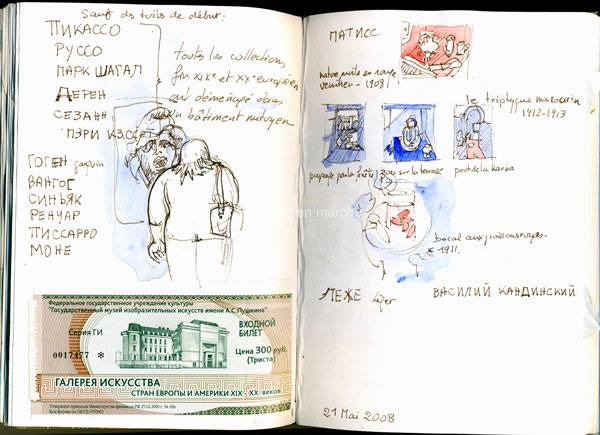 Sauf ds toiles de début:
ПИКАССО
РУССО
МАРК ШАГАЛ
ДЕРЕН
СЕЗАНН
ПЭРИ КЭССЕТ
toutes les collections
fin XIXe et XXe européen
ont déménagé dans
un bâtiment mitoyen
ГОГЕН gauguin
ВАНГОГ
СИНЬЯК
РЕНУАР
ПИССАРРО
МОНЕ
Федеральное государственное учреждение культуры
"Государственный музей изобразительных искусств имени А.С.Пушкина"
Серия ГИ
0017477 *
ВХОДНОЙ
БИЛЕТ
Цена 300 руб.
(Триста)
ГАЛЕРЕЯ ИСКУССТВА
СТРАН ЕВРОПЫ И АМЕРИКИ XIX - XX веков
МАТИСС
nature morte en rouge
1908
le triptyque marocain
1912-1913
paysage
sur la terrasse
porte de la kasba
bocal aux poissons rouges
1911.
ЛЕЖЕ léger
ВАСИЛИЙ КАНДИНСКИЙ
21 Mai 2008
en march